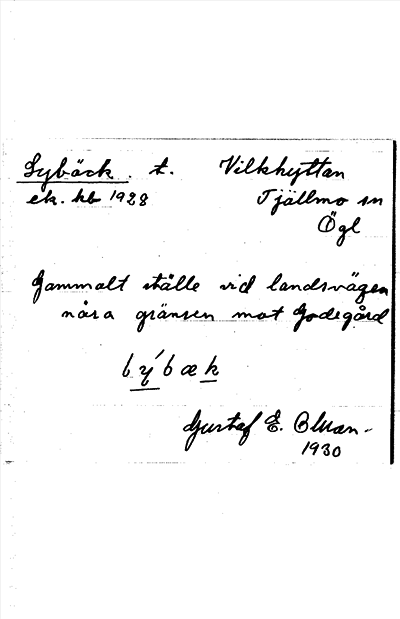 Lybäck. t. Vilkhyttan
ek. kb 1928 Tjällmo sn
Ögl
Gammalt ställe vid landsvägen
nära gränsen mot Godegård
Gustaf E.
1930